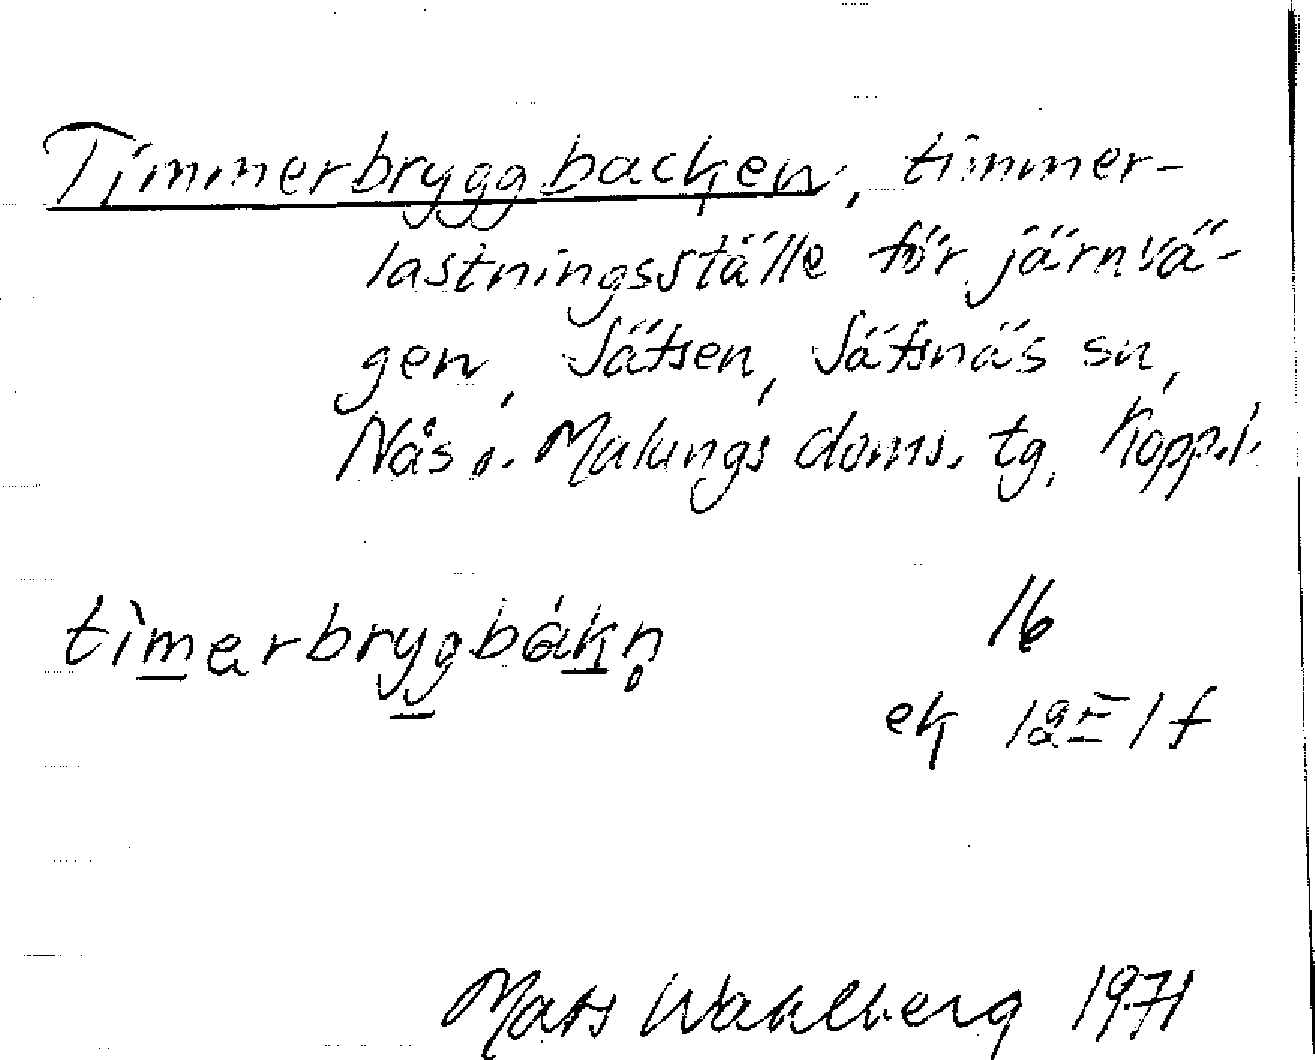 Timmerbryggbacken, timmer-
lastningsställe för järnvä-
gen, Sätsen, Sätsnäs sn,
Nås o. Malungs doms. tg, Kopp.l.
tìmerbrygbákn̥ 16
ek 12E1f
Mats Wahlberg 1971